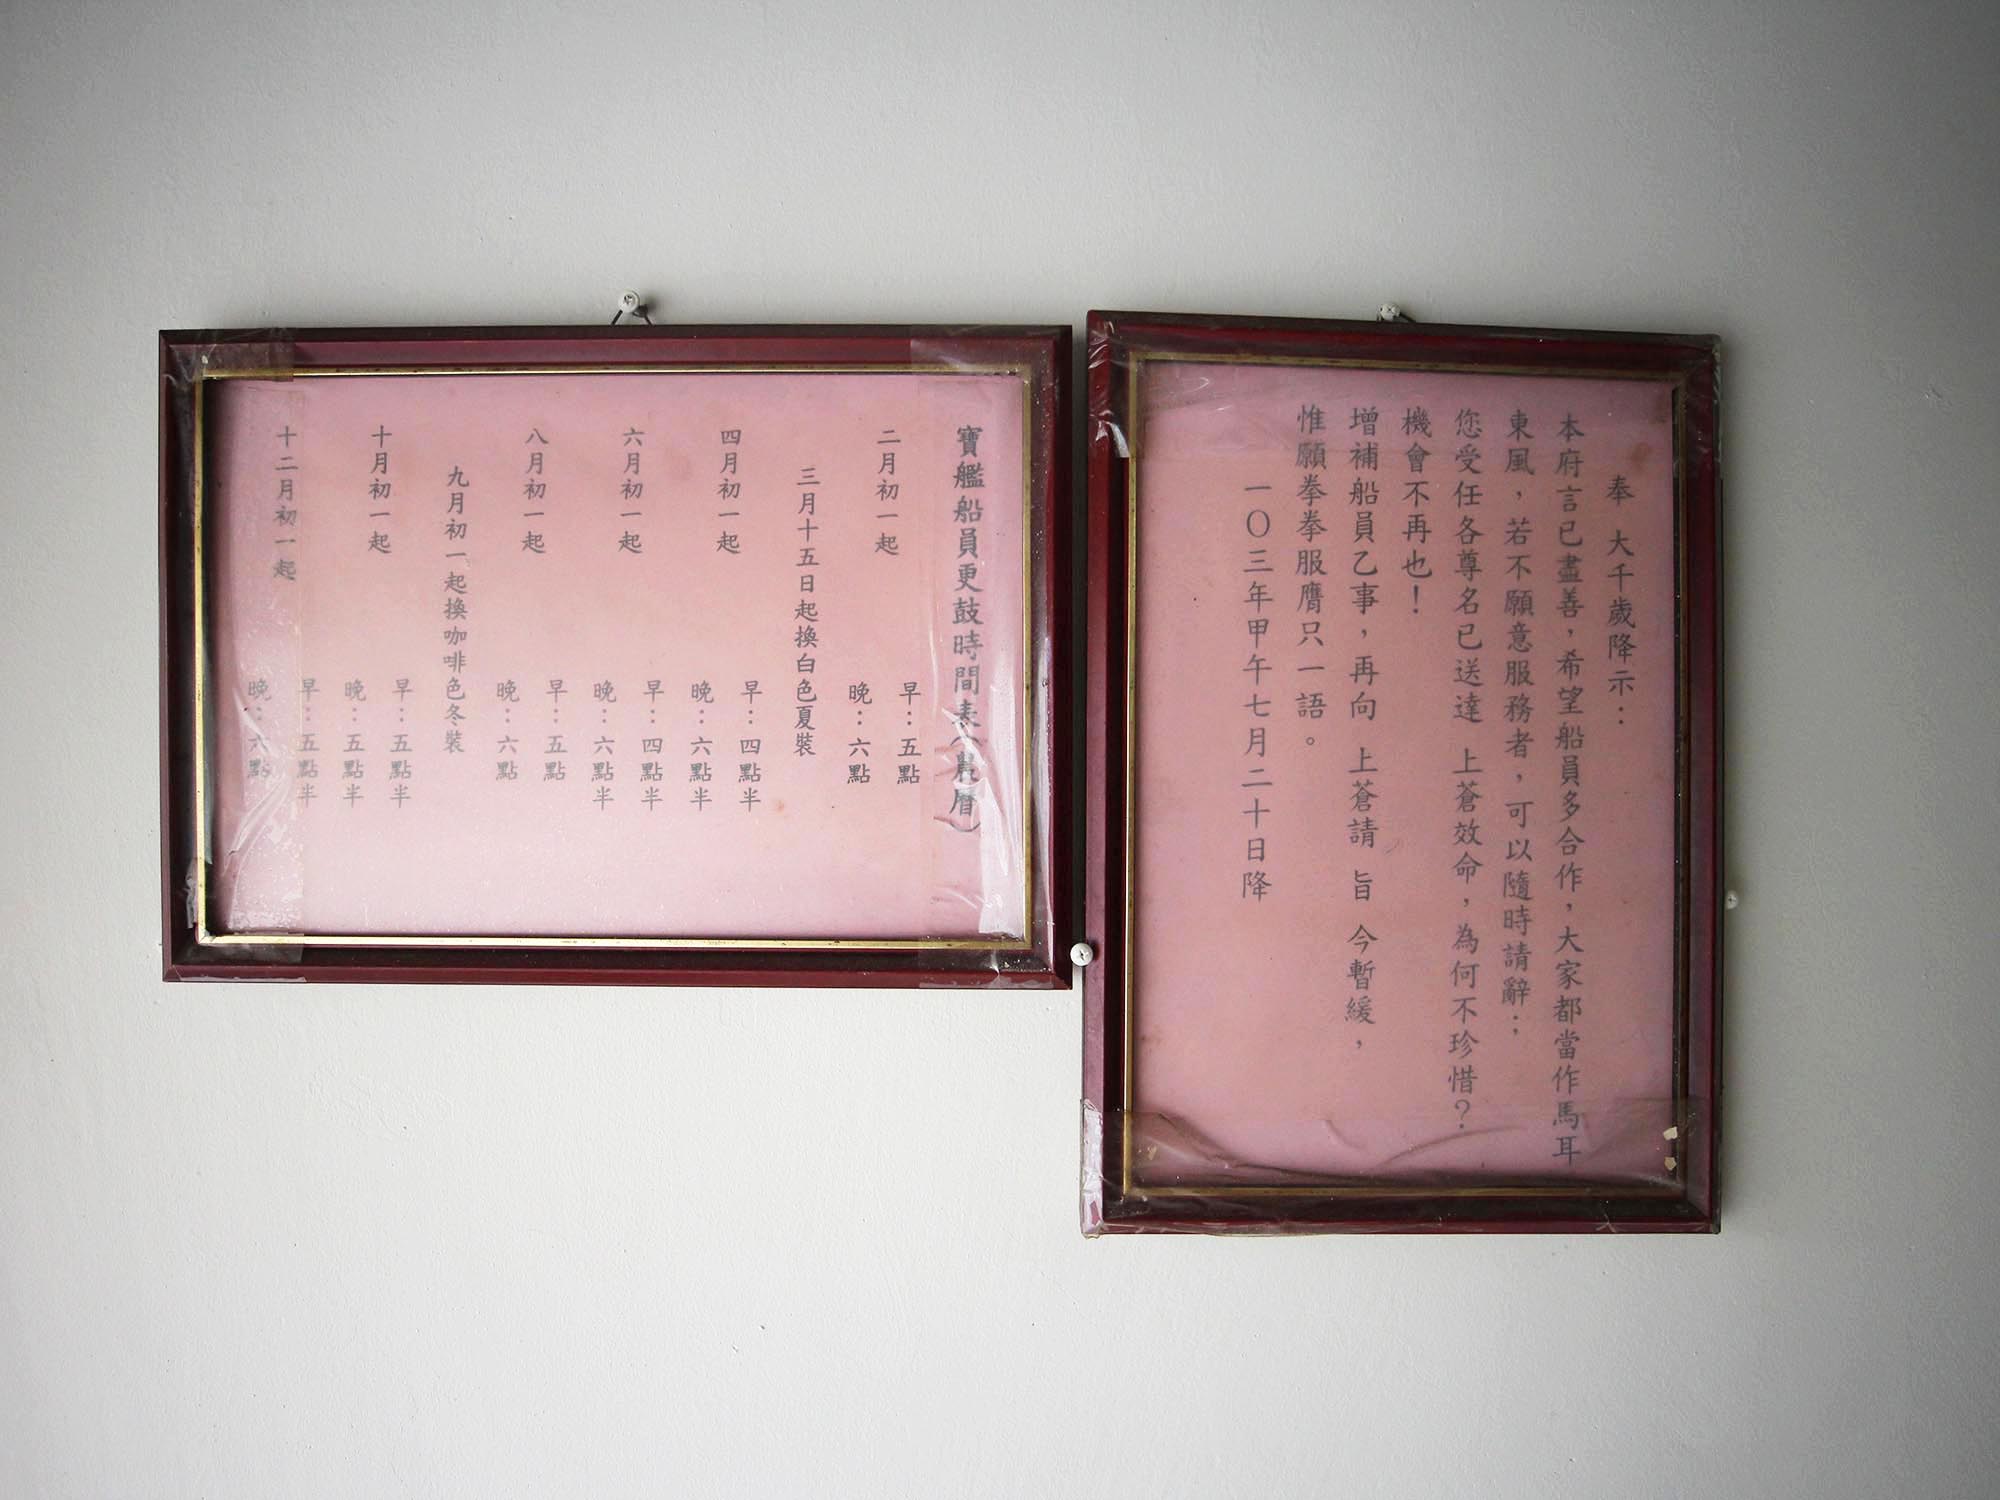 奉 大千歲降示：
本府言已盡善，希望船員多合作，大家都當作馬耳
東風，若不願意服務者，可以隨時請辭：，
您受任各尊名已送達 上蒼效命，為何不珍惜？
機會不再也！
增補船員乙事，再向 上蒼請 旨 今暫緩，
惟願拳拳服膺只一語。
一〇三年甲午七月二十日降
寶艦船員更鼓時間表（農曆）
二月初一起
早：五點
晚：六點
三月十五日起換白色夏裝
四月初一起
早：四點半
晚：六點半
六月初一起
早：四點半
晚：六點半
八月初一起
早：五點
晚：六點
九月初一起換咖啡色冬裝
十月初一起
早：五點半
晚：五點半
十二月初一起
早：五點半
晚：六點